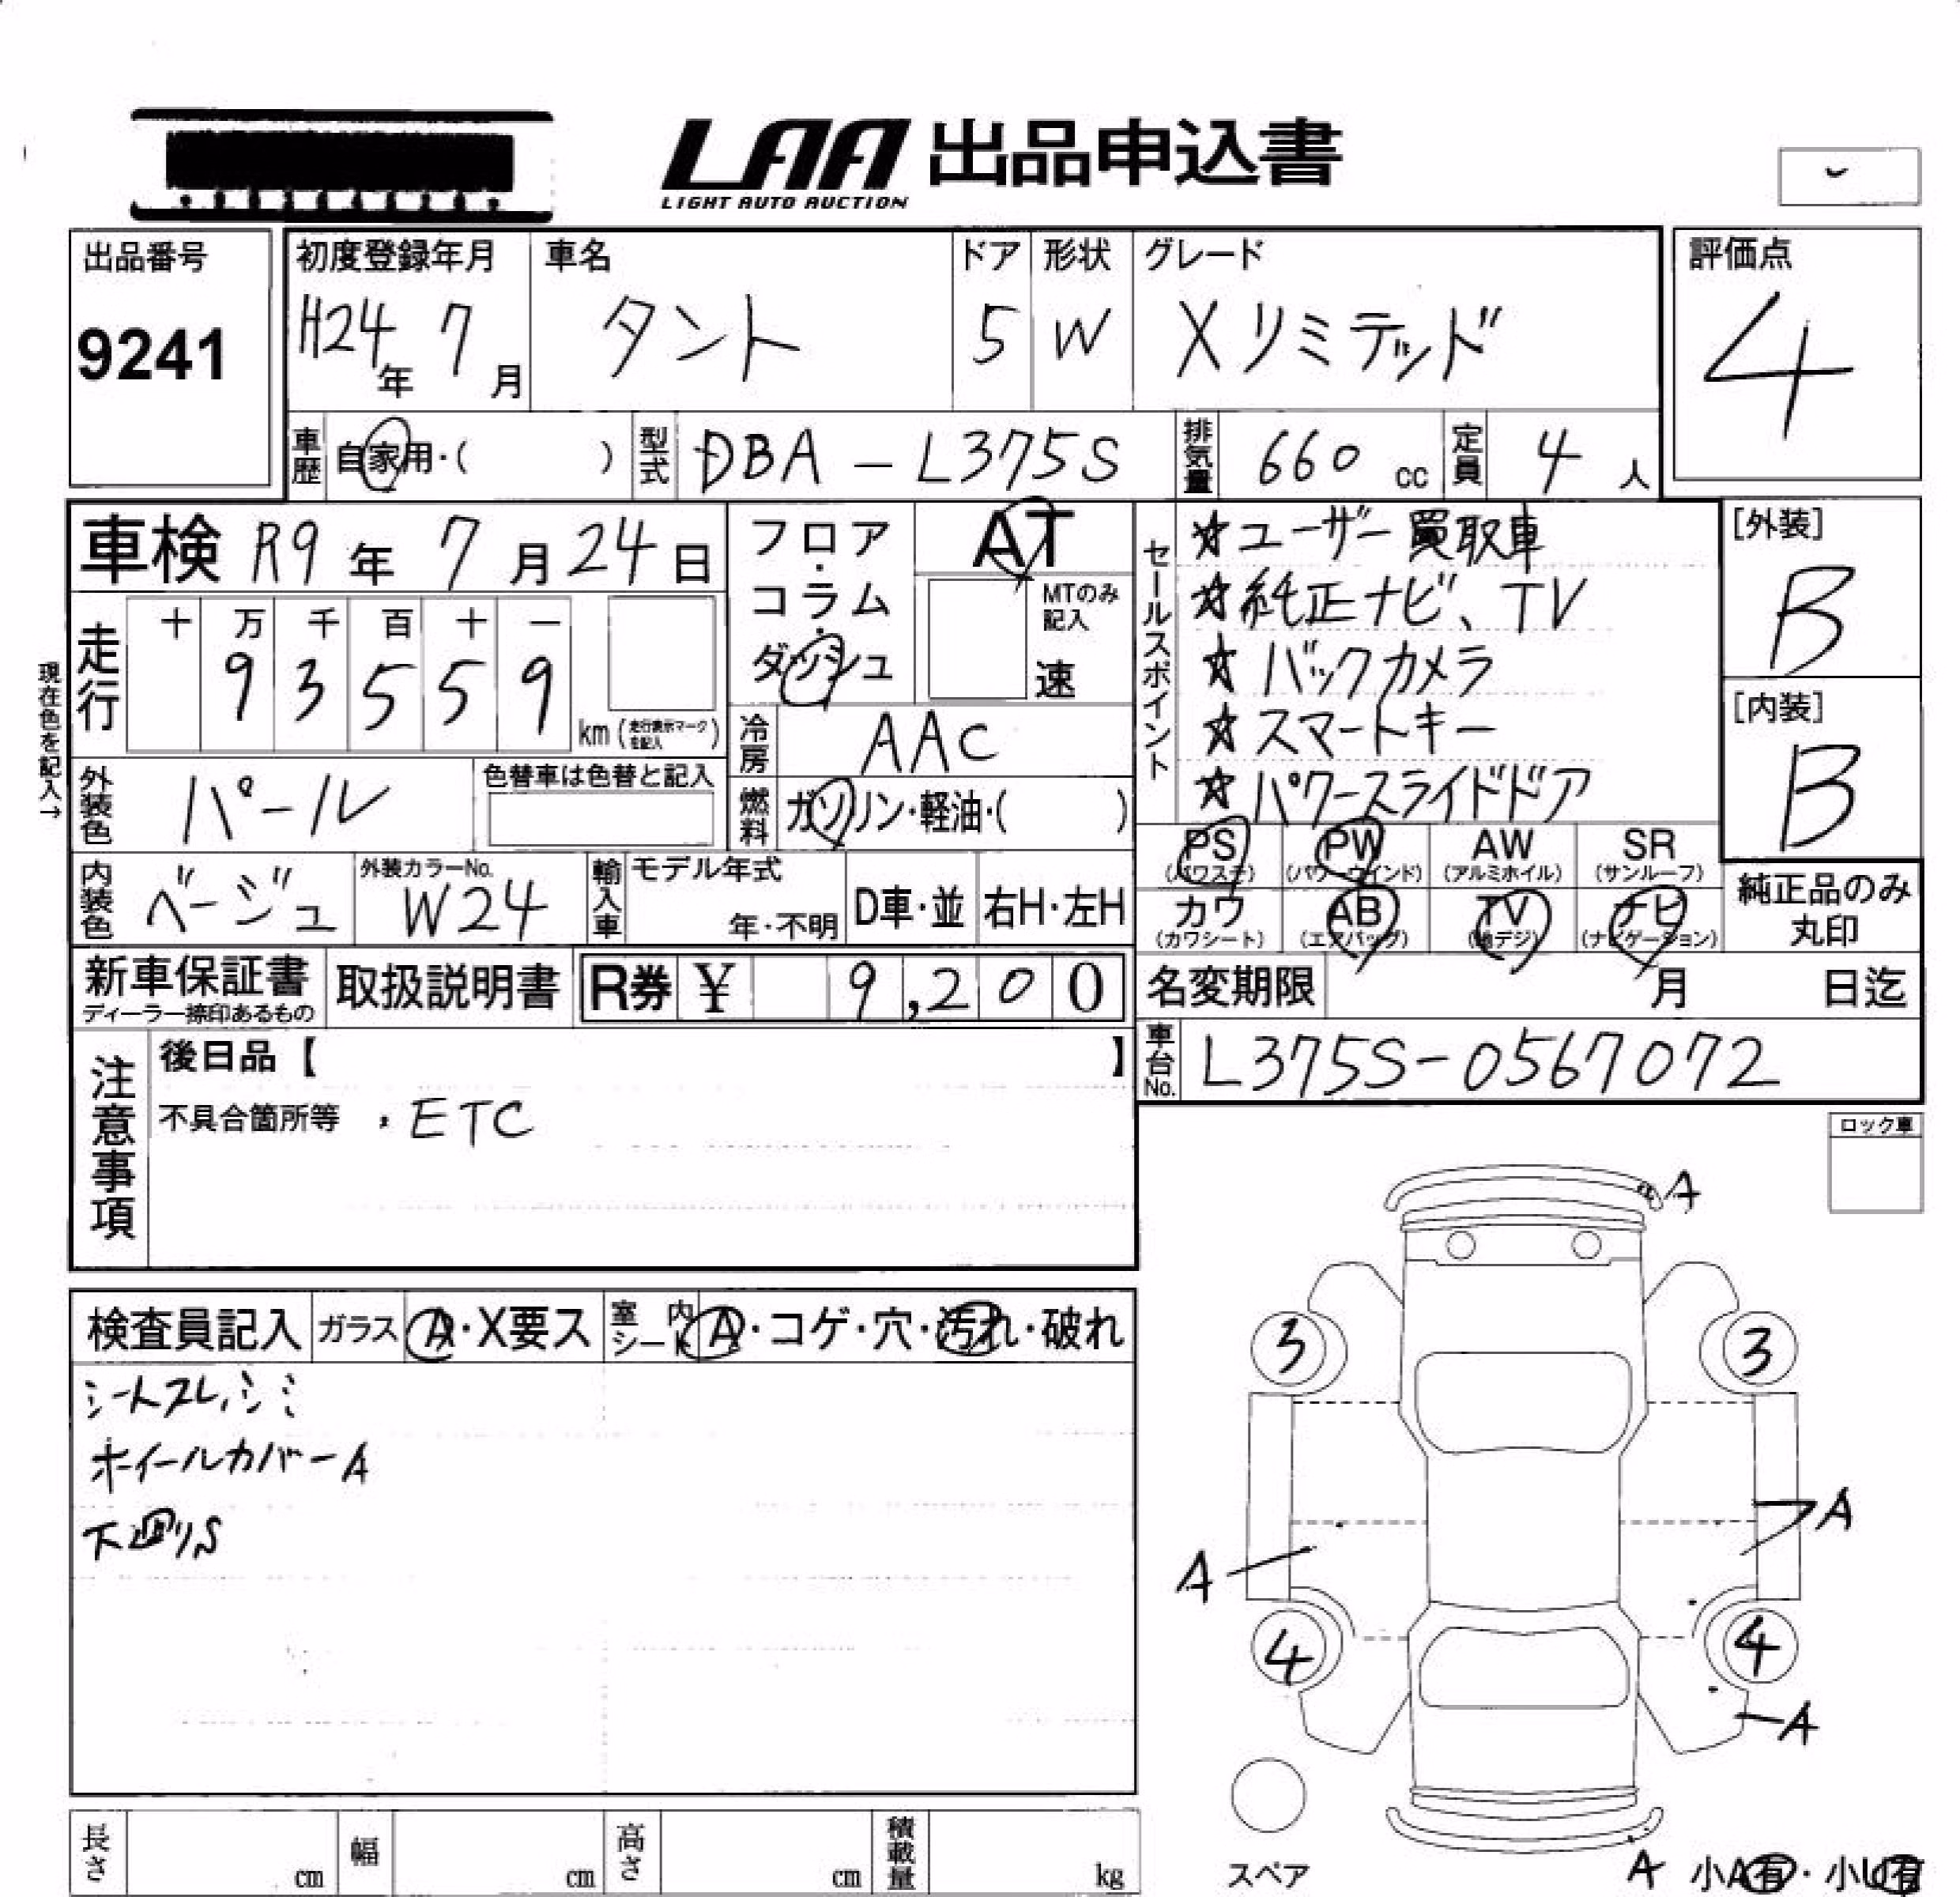 LAA 出品申込書
LIGHT AUTO AUCTION
出品番号
9241
初度登録年月
H24年 7月
車名
タント
ドア
5
形状
W
グレード
Xリミテッド
評価点
4
車歴 自家用・( )
型式 DBA-L375S
排気量 660 cc
定員 4 人
車検 R9年 7月 24日
フロア・コラム・ダッシュ
AT
MTのみ記入
速
現在色を記入→
走行
十 万 千 百 十 一
9 3 5 5 9
km (走行表示マークを記入)
冷房 AAC
外装色 パール
色替車は色替と記入
燃料 ガソリン・軽油・( )
内装色 ベージュ
外装カラーNo.
W24
輸入車 モデル年式
年・不明
D車・並 右H・左H
セールスポイント
☆ユーザー買取車
☆純正ナビ、TV
☆バックカメラ
☆スマートキー
☆パワースライドドア
[外装]
B
[内装]
B
PS (パワステ)
PW (パワーウインド)
AW (アルミホイル)
SR (サンルーフ)
カワ (カワシート)
AB (エアバッグ)
TV (地デジ)
ナビ (ナビゲーション)
純正品のみ
丸印
新車保証書
ディーラー捺印あるもの
取扱説明書
R券 ¥ 9,200
名変期限 月 日迄
車台No. L375S-0567072
注意事項
後日品【 】
不具合箇所等 ・ETC
ロック車
検査員記入
ガラス A・X要ス
室内シート A・コゲ・穴・汚れ・破れ
シートスレ、シミ
ホイールカバーA
下廻りS
A
3 3
A
A
4 4
A
スペア
A 小A有・小U有
長さ cm
幅 cm
高さ cm
積載量 kg